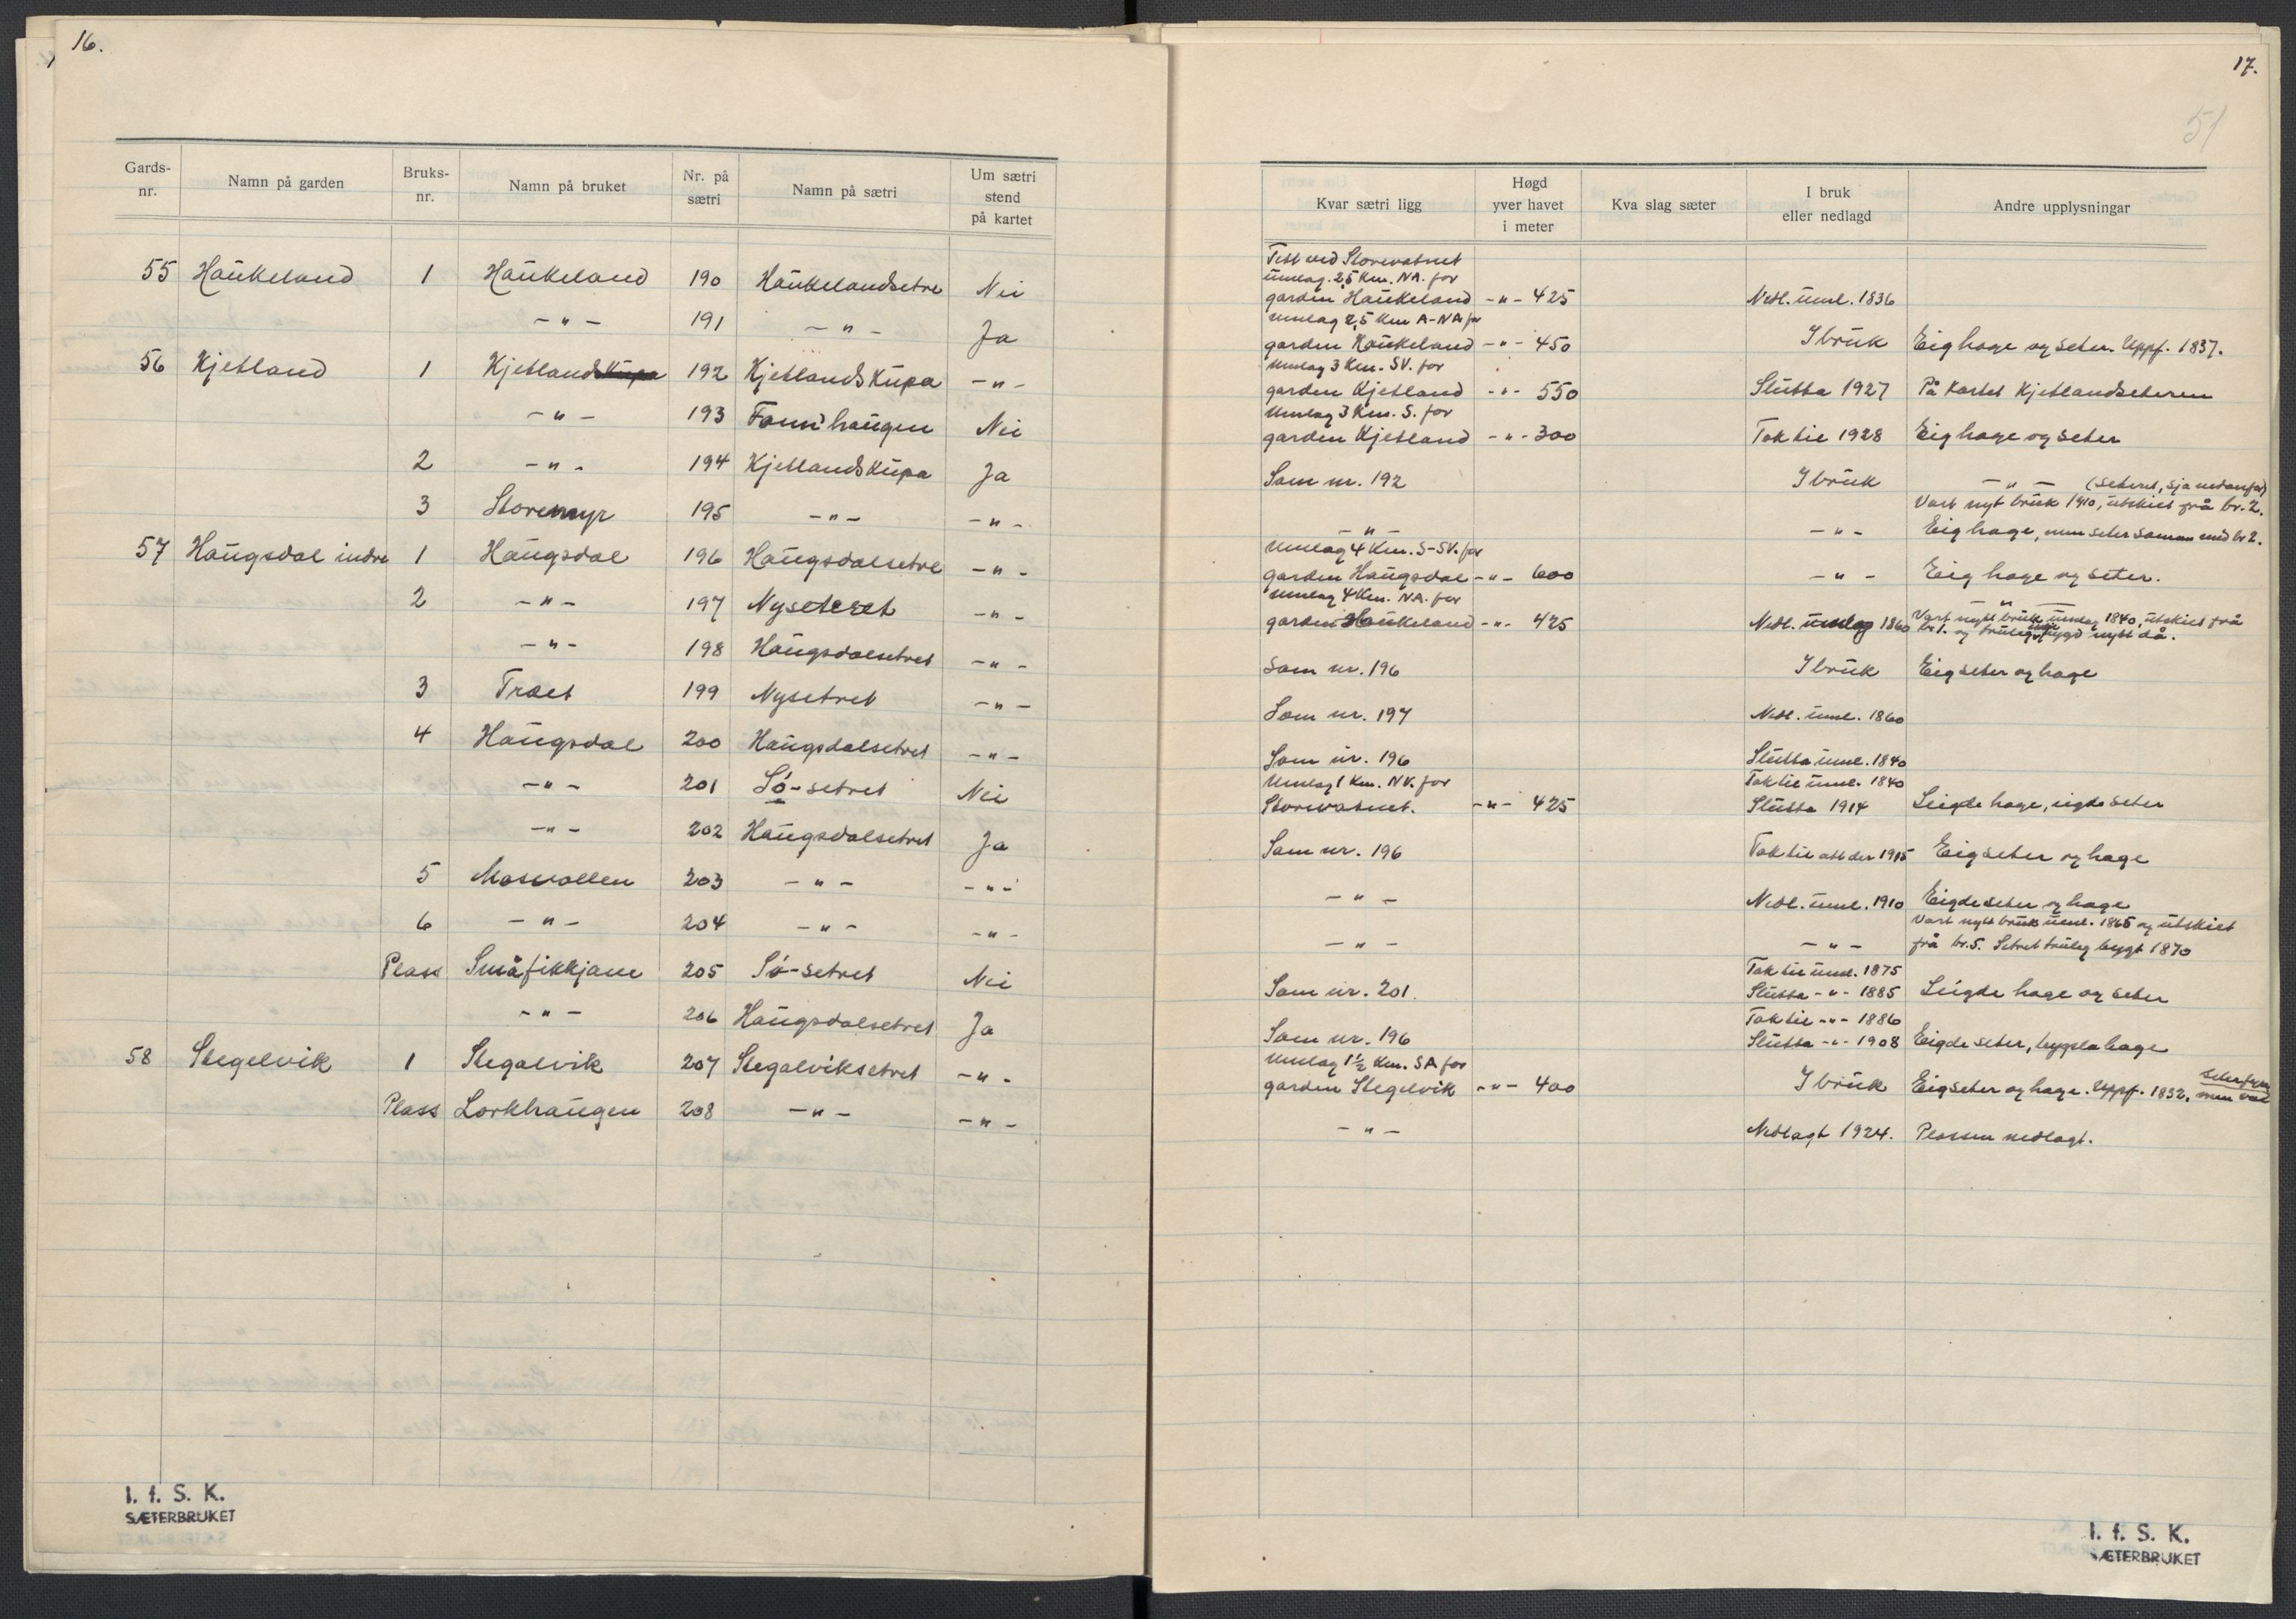 16.
Gards-nr. Namn på garden Bruks-nr. Namn på bruket Nr. på sætri Namn på sætri Um sætri stend på kartet
55 Haukeland 1 Haukeland 190 Haukelandsetre Nei
-"- 191 -"- Ja
56 Kjetland 1 Kjetland 192 Kjetlandskupa -"-
-"- 193 haugen Nei
2 -"- 194 Kjetlandskupa Ja
3 Storemyr 195 -"- -"-
57 Haugsdal indre 1 Haugsdal 196 Haugsdalsetre -"-
2 -"- 197 Nyseteret -"-
-"- 198 Haugsdalsetret -"-
3 Træet 199 Nysetret -"-
4 Haugsdal 200 Haugsdalsetret -"-
-"- 201 Sø-setret Nei
-"- 202 Haugsdalsetret Ja
5 Mosvollen 203 -"- -"-
6 -"- 204 -"- -"-
Plass Småfikkjane 205 Sø-setret Nei
-"- 206 Haugsdalsetret Ja
58 Stegelvik 1 Stegalvik 207 Stegalviksetret -"-
Plass Lorkhaugen 208 -"- -"-
I. f. S. K.
SÆTERBRUKET
17.
51
Kvar sætri ligg Høgd yver havet i meter Kva slag sæter I bruk eller nedlagd Andre upplysningar
Tett ved Storevatnet
umlag 2,5 Km. NA. for
garden Haukeland -"- 425 Nedl. uml. 1836
Umlag 2,5 Km A-NA for
garden Haukeland -"- 450 I bruk Eig hage og seter. Uppf. 1837.
Umlag 3 Km. SV. for
garden Kjetland -"- 550 Slutta 1927 På kartet Kjetlandseteren
Umlag 3 Km. S. for
garden Kjetland -"- 300 Tok til 1928 Eig hage og seter
Som nr. 192 I bruk -"- (seteret, sjå nedanfor)
Vart nyt bruk 1910, utskiet frå br. 2.
-"- -"- Eig hage, men seter saman med br 2.
Umlag 4 Km. S-SV. for
garden Haugsdal -"- 600 -"- Eig hage og seter.
Umlag 4 Km. NA. for -"-
garden Haukeland -"- 425 Nedl. umlag 1860 Vart nytt bruk umlag 1840, utskiet frå
br. 1. og truleg bygd nytt då.
Som nr. 196 I bruk Eig seter og hage
Som nr. 197 Nedl. uml. 1860
Som nr. 196 Slutta uml. 1840
Umlag 1 Km. NV. for Tok til uml. 1840
Storevatnet. -"- 425 Slutta 1914 Leigde hage, eigde seter
Som nr. 196 Tok til att der 1915 Eig seter og hage
-"- Nedl. uml. 1910 Eigde seter og hage
Vart nytt bruk uml. 1865 og utskiet
-"- -"- frå br. 5. Setret truleg bygt 1870
Tok til uml. 1875
Som nr. 201. Slutta -"- 1885 Leigde hage og seter
Tok til -"- 1886
Som nr. 196 Slutta -"- 1908 Eigde seter, bygsla hage
Umlag 1½ Km. SA for
garden Stegelvik -"- 400 I bruk Eig seter og hage. Uppf. 1832.
-"- Nedlagt 1924. Plassen nedlagt.
I. f. S. K.
SÆTERBRUKET